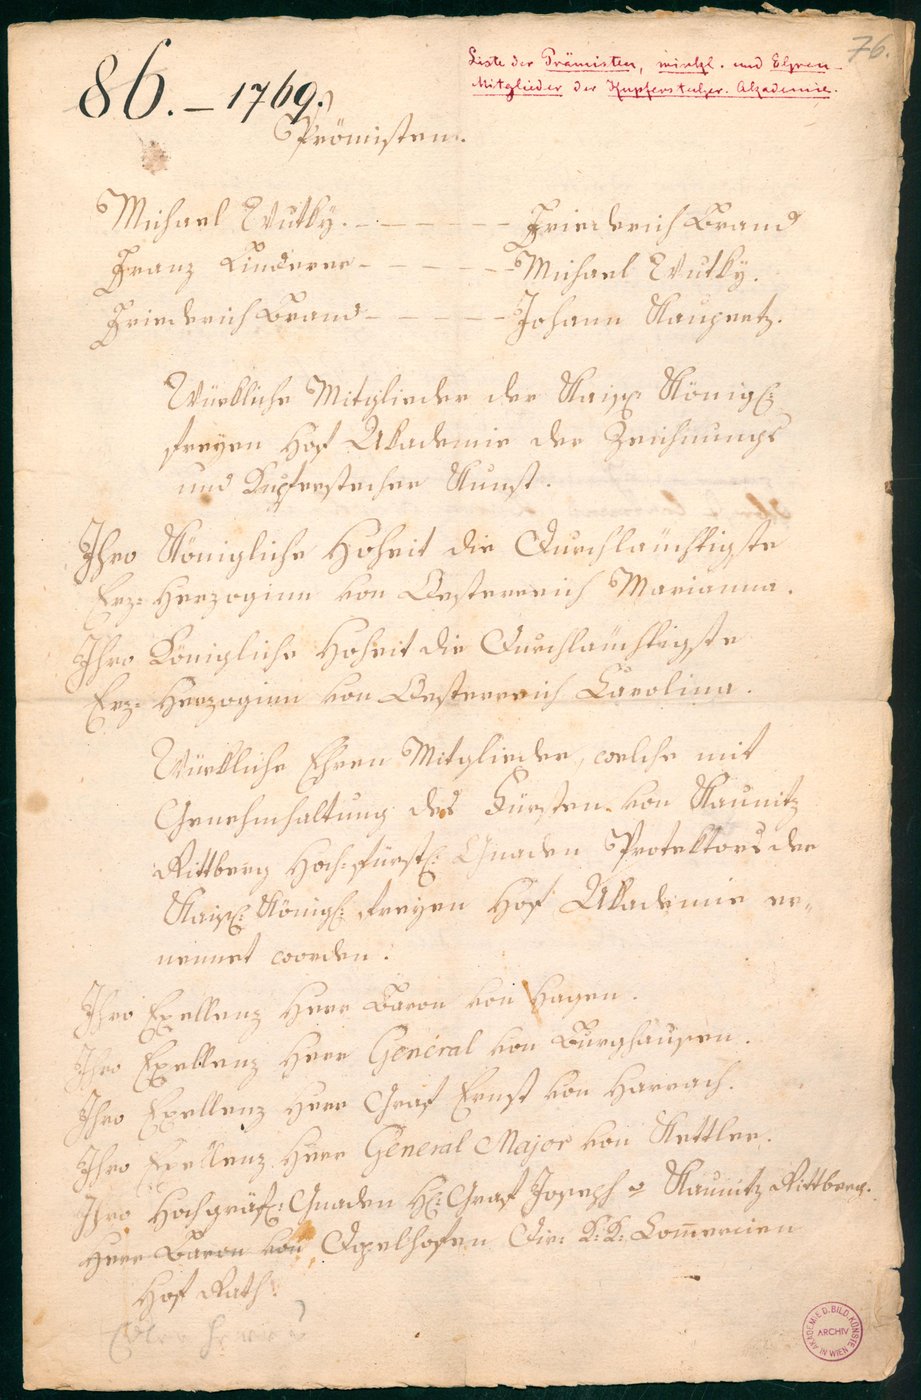 76.
Liste der Prämisten, wirkl. und Ehren-
Mitglieder der Kupferstecher. Akademie.
86. – 1769.
Prömisten.
Michael Wutky. – – – – – Friederich Brand
Franz Linderer – – – – – Michael Wutky.
Friederich Brand – – – – – Johann Kaupertz.
Würkliche Mitglieder der Kaiſ: Königl:
freyen Hof Akademie der Zeichnungs
und Kupferstecher Kunst.
Ihro Königliche Hoheit die Durchläuchtigste
Erz-Herzoginn von Oesterreich Marianna.
Ihro Königliche Hoheit die Durchläuchtigste
Erz-Herzoginn von Oesterreich Carolina.
Würkliche Ehren Mitglieder, welche mit
Genehmhaltung des Fürsten von Kaunitz
Rittberg Hoch-fürstl: Gnaden Protektors der
Kaiſl: Königl: freyen Hof Akademie er-
nennet worden.
Ihro Exellenz Herr Baron von Hagen.
Ihro Exellenz Herr General von Burghausen.
Ihro Exellenz Herr Graf Ernst von Harrach.
Ihro Exellenz Herr General Major von Kettler.
Ihro Hochgräfl: Gnaden H: Graf Joseph v Kaunitz Rittberg.
Herr Baron von Dopelhofen Dir: K: K: Commercien
Hof Rath.
AKADEMIE D. BILD. KÜNSTE IN WIEN
ARCHIV